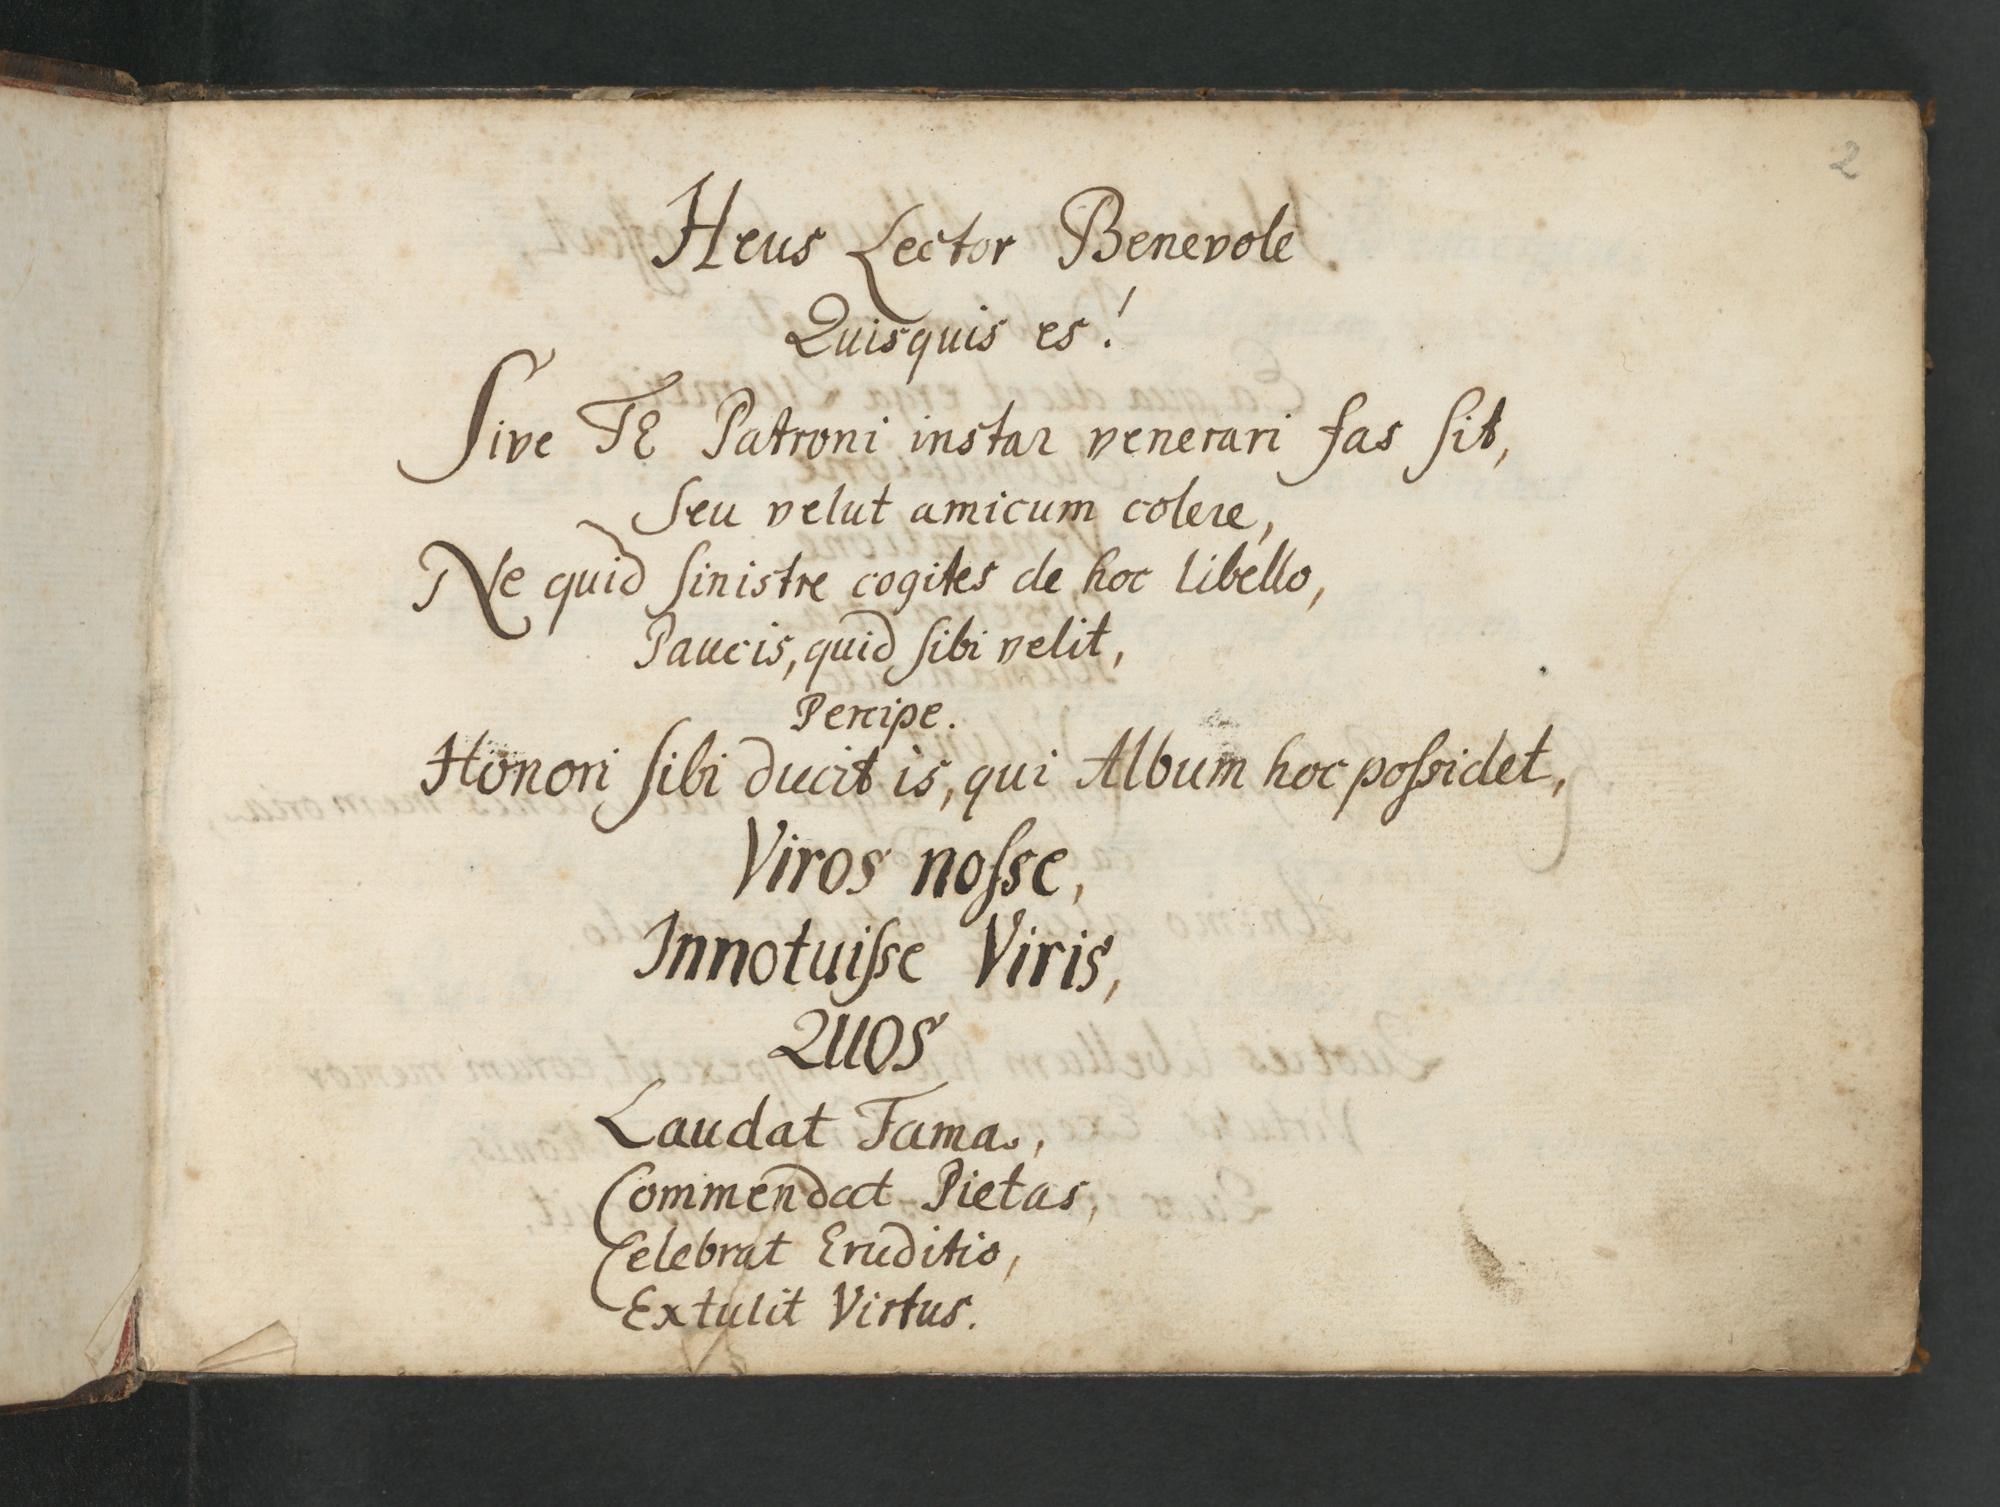 2
Heus Lector Benevole
Quisquis es!
Sive TE Patroni instar venerari fas sit,
seu velut amicum colere,
Ne quid sinistre cogites de hoc libello,
Paucis, quid sibi velit,
Percipe.
Honori sibi ducit is, qui Album hoc possidet,
Viros nosse,
Innotuisse Viris,
QUOS
Laudat Fama,
Commendat Pietas,
Celebrat Eruditio,
Extulit Virtus.